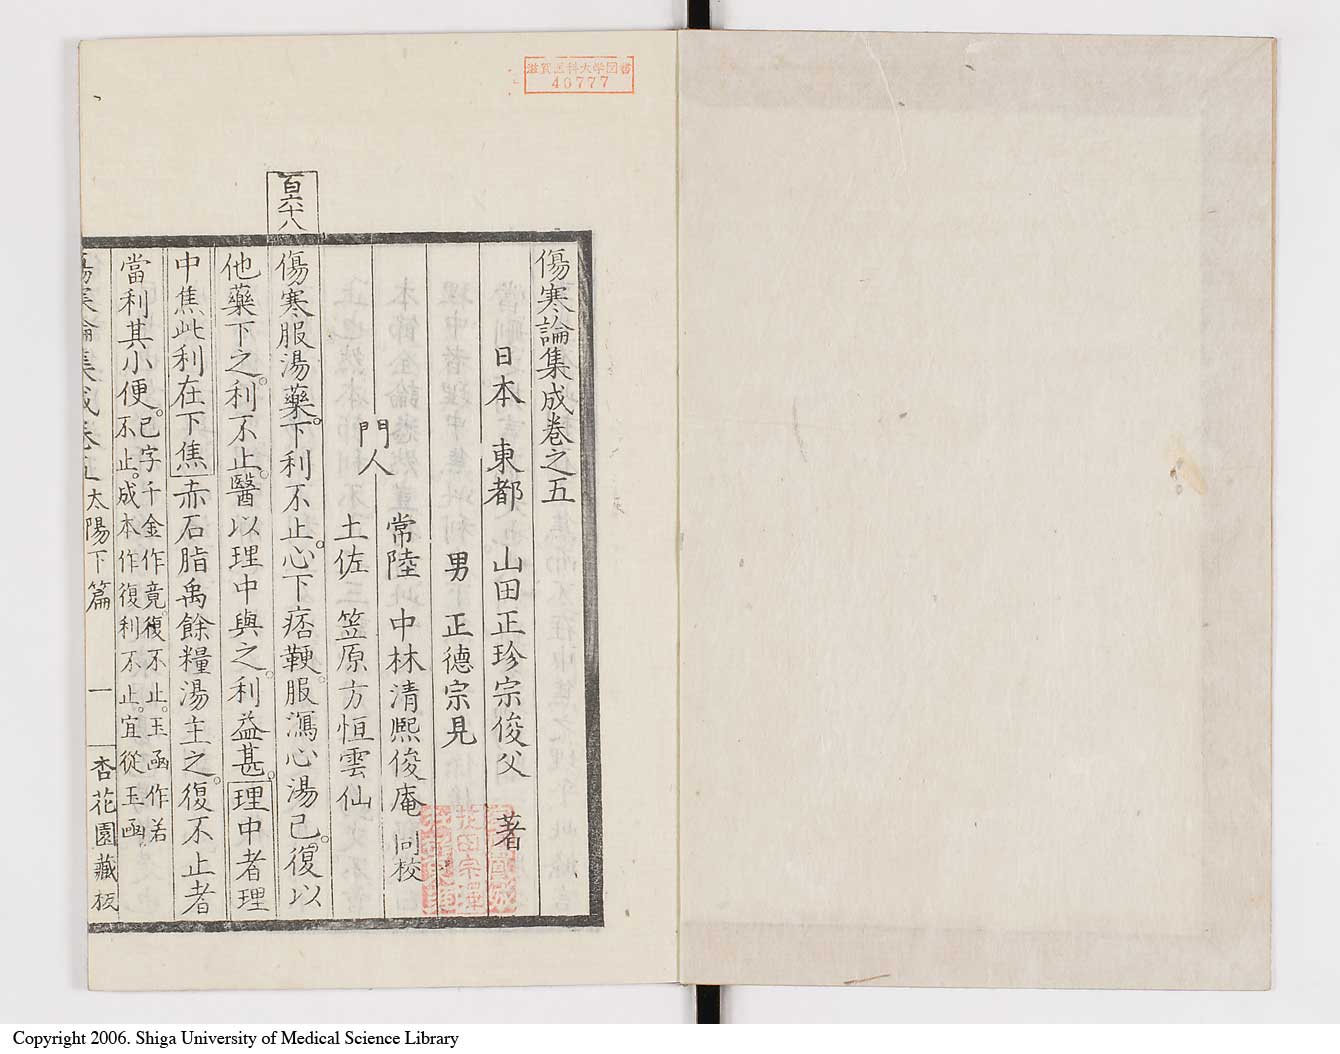 滋賀医科大学図書
46777
百六十八
傷寒論集成卷之五
日本　東都　山田正珍宗俊父　著
男　正德宗見
門人　常陸　中林清熙俊庵　同校
土佐　笠原方恒雲仙
傷寒服湯藥。下利不止。心下痞鞕。服瀉心湯已。復以
他藥下之。利不止。醫以理中與之。利益甚。理中者理
中焦此利在下焦赤石脂禹餘糧湯主之。復不止者
當利其小便。已字千金作竟。復不止。玉函作若
不止。成本作復利不止。宜從玉函
傷寒論集成卷五　太陽下篇　一　杏花園藏板
Copyright 2006. Shiga University of Medical Science Library